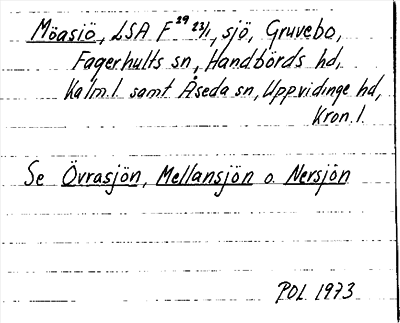 Möasiö, LSA F 29 23/1, sjö, Gruvebo,
Fagerhults sn, Handbörds hd,
Kalm. l. samt Åseda sn, Uppvidinge hd,
Kron. l.
Se Övrasjön, Mellansjön o. Nersjön
POL 1973